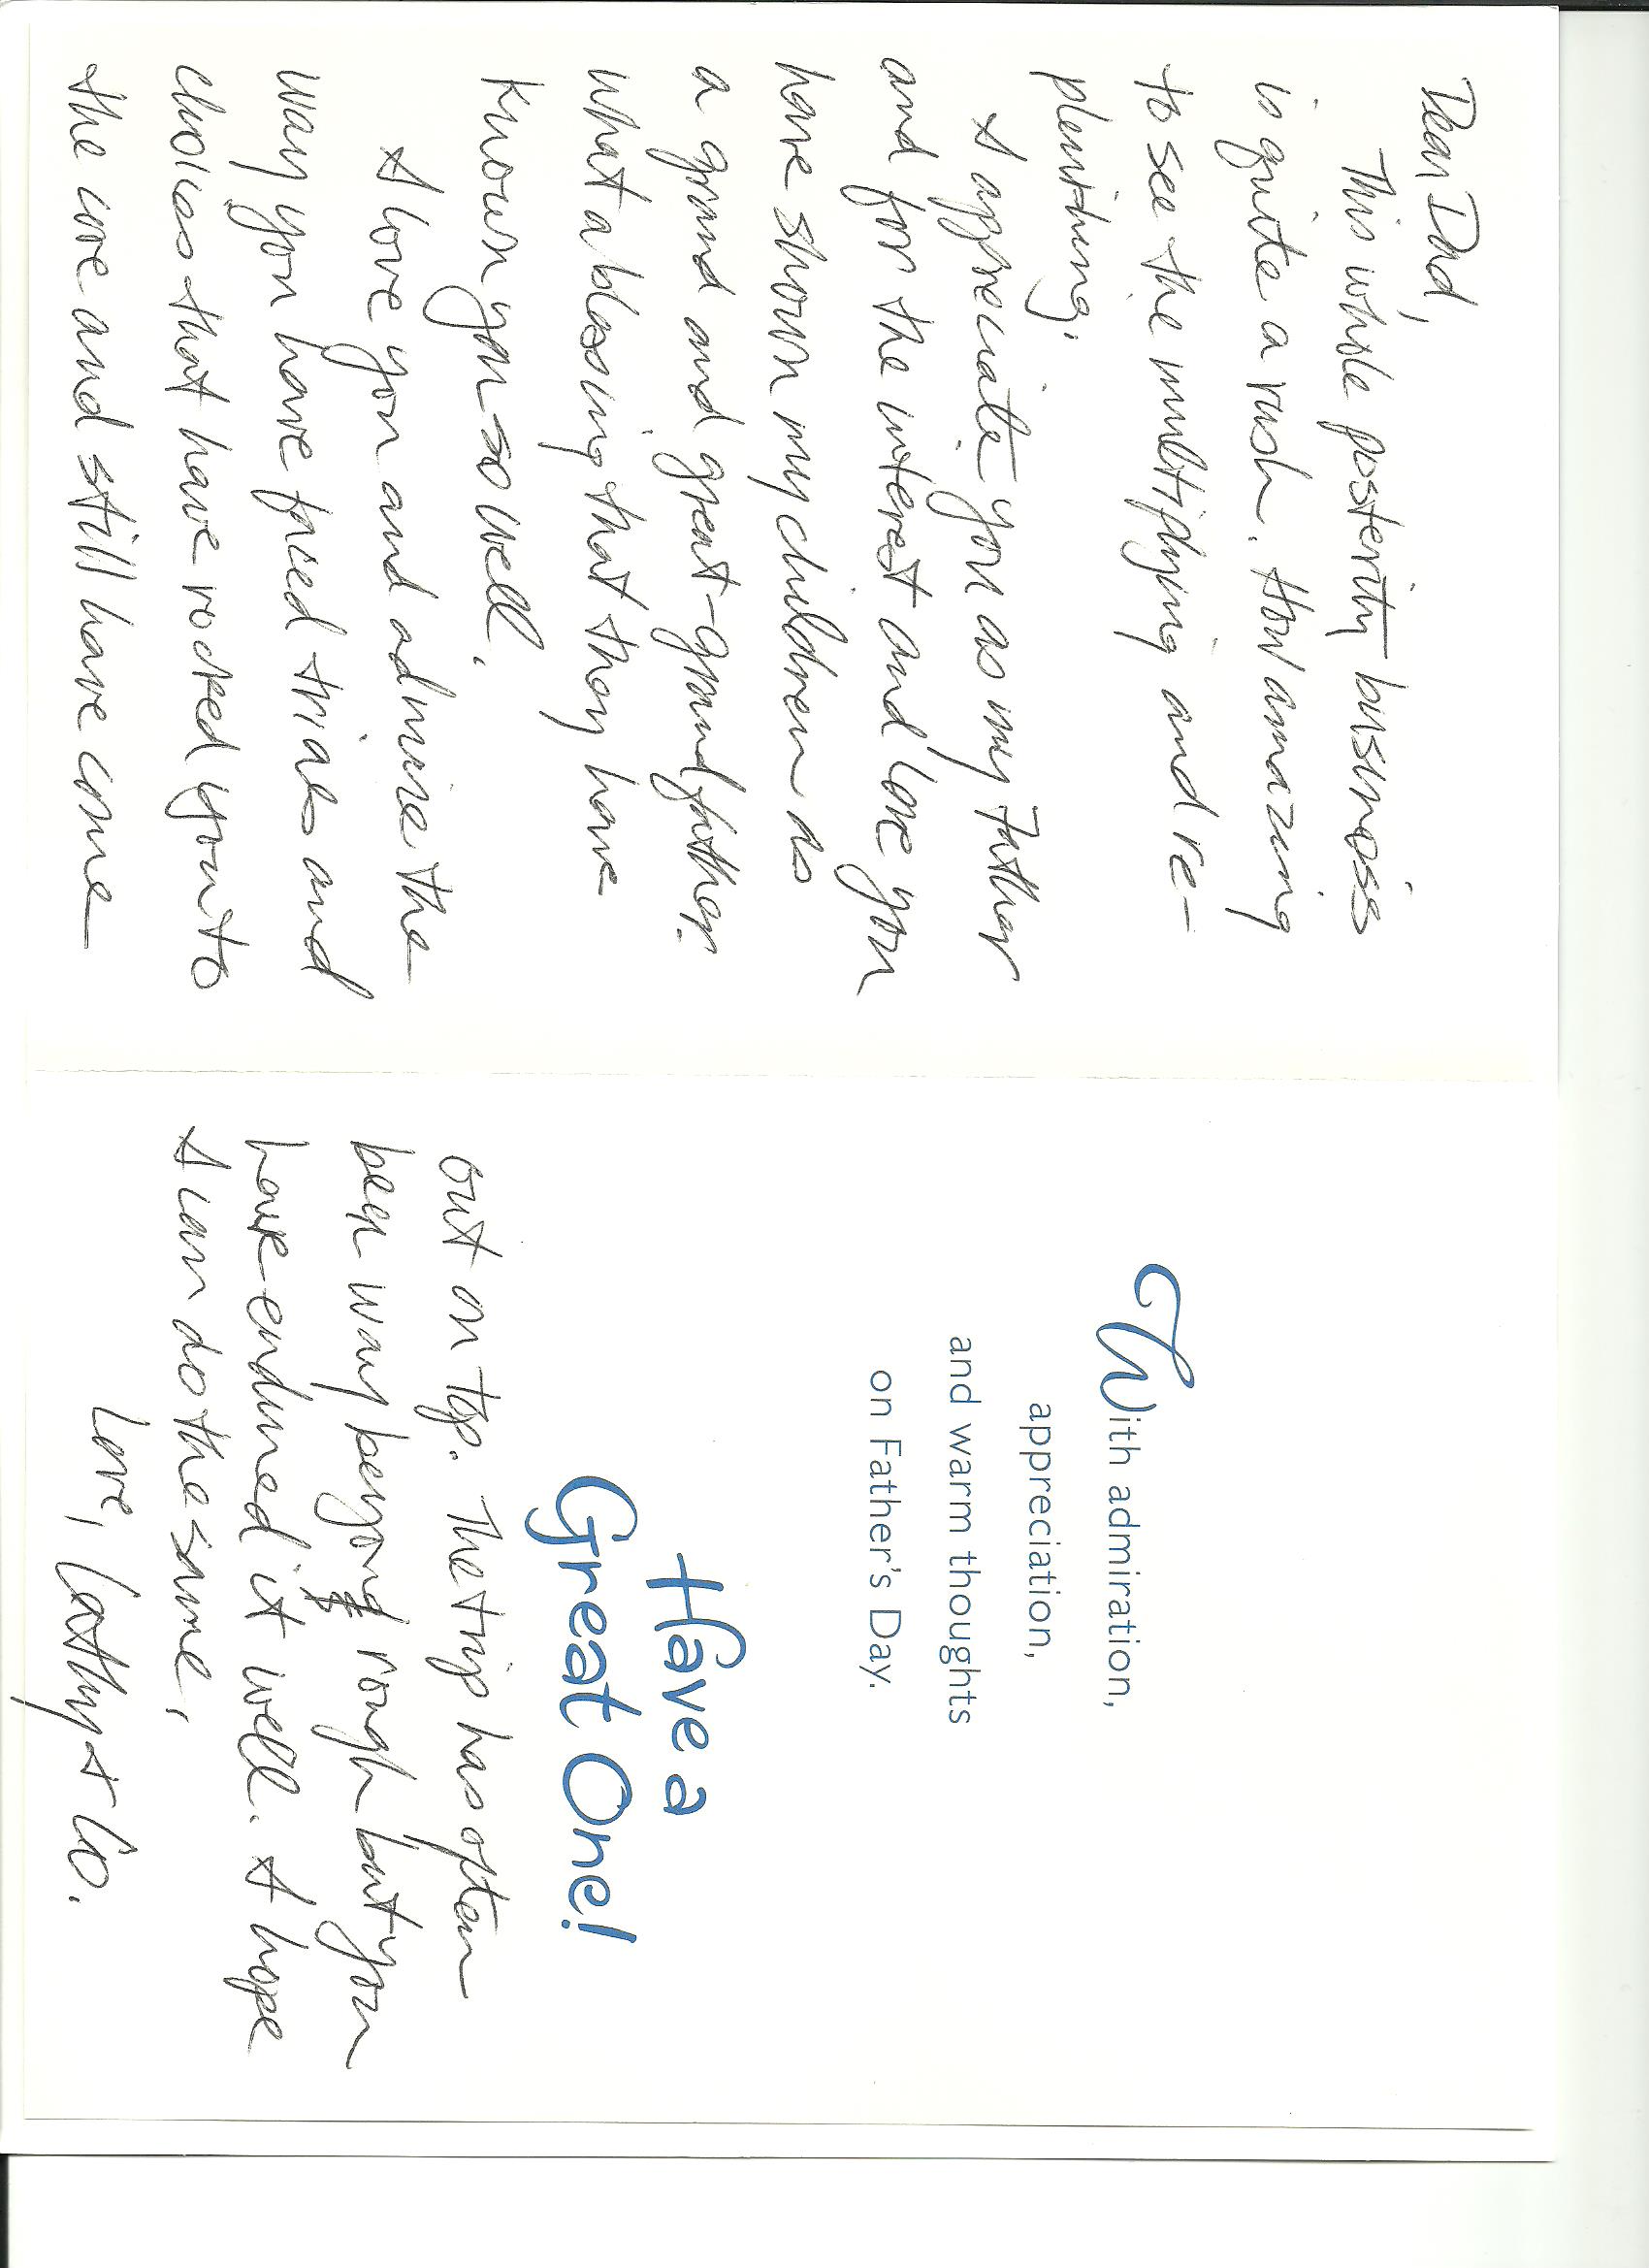 Dear Dad,
This whole posterity business
is quite a rush. How amazing
to see the multiplying and re-
plenthing.
I appreciate you as my Father
and for the interest and love you
have shown my children as
a grand and great-grandfather.
What a blessing that they have
known you so well.
I love you and admire the
way you have faced trials and
choices that have rocked you to
the core and still have come
With admiration,
appreciation,
and warm thoughts
on Father's Day.
Have a
Great One!
out on top. The trip has often
been way beyond rough but you
have endured it well. I hope
I can do the same.
Love, Cathy & Co.